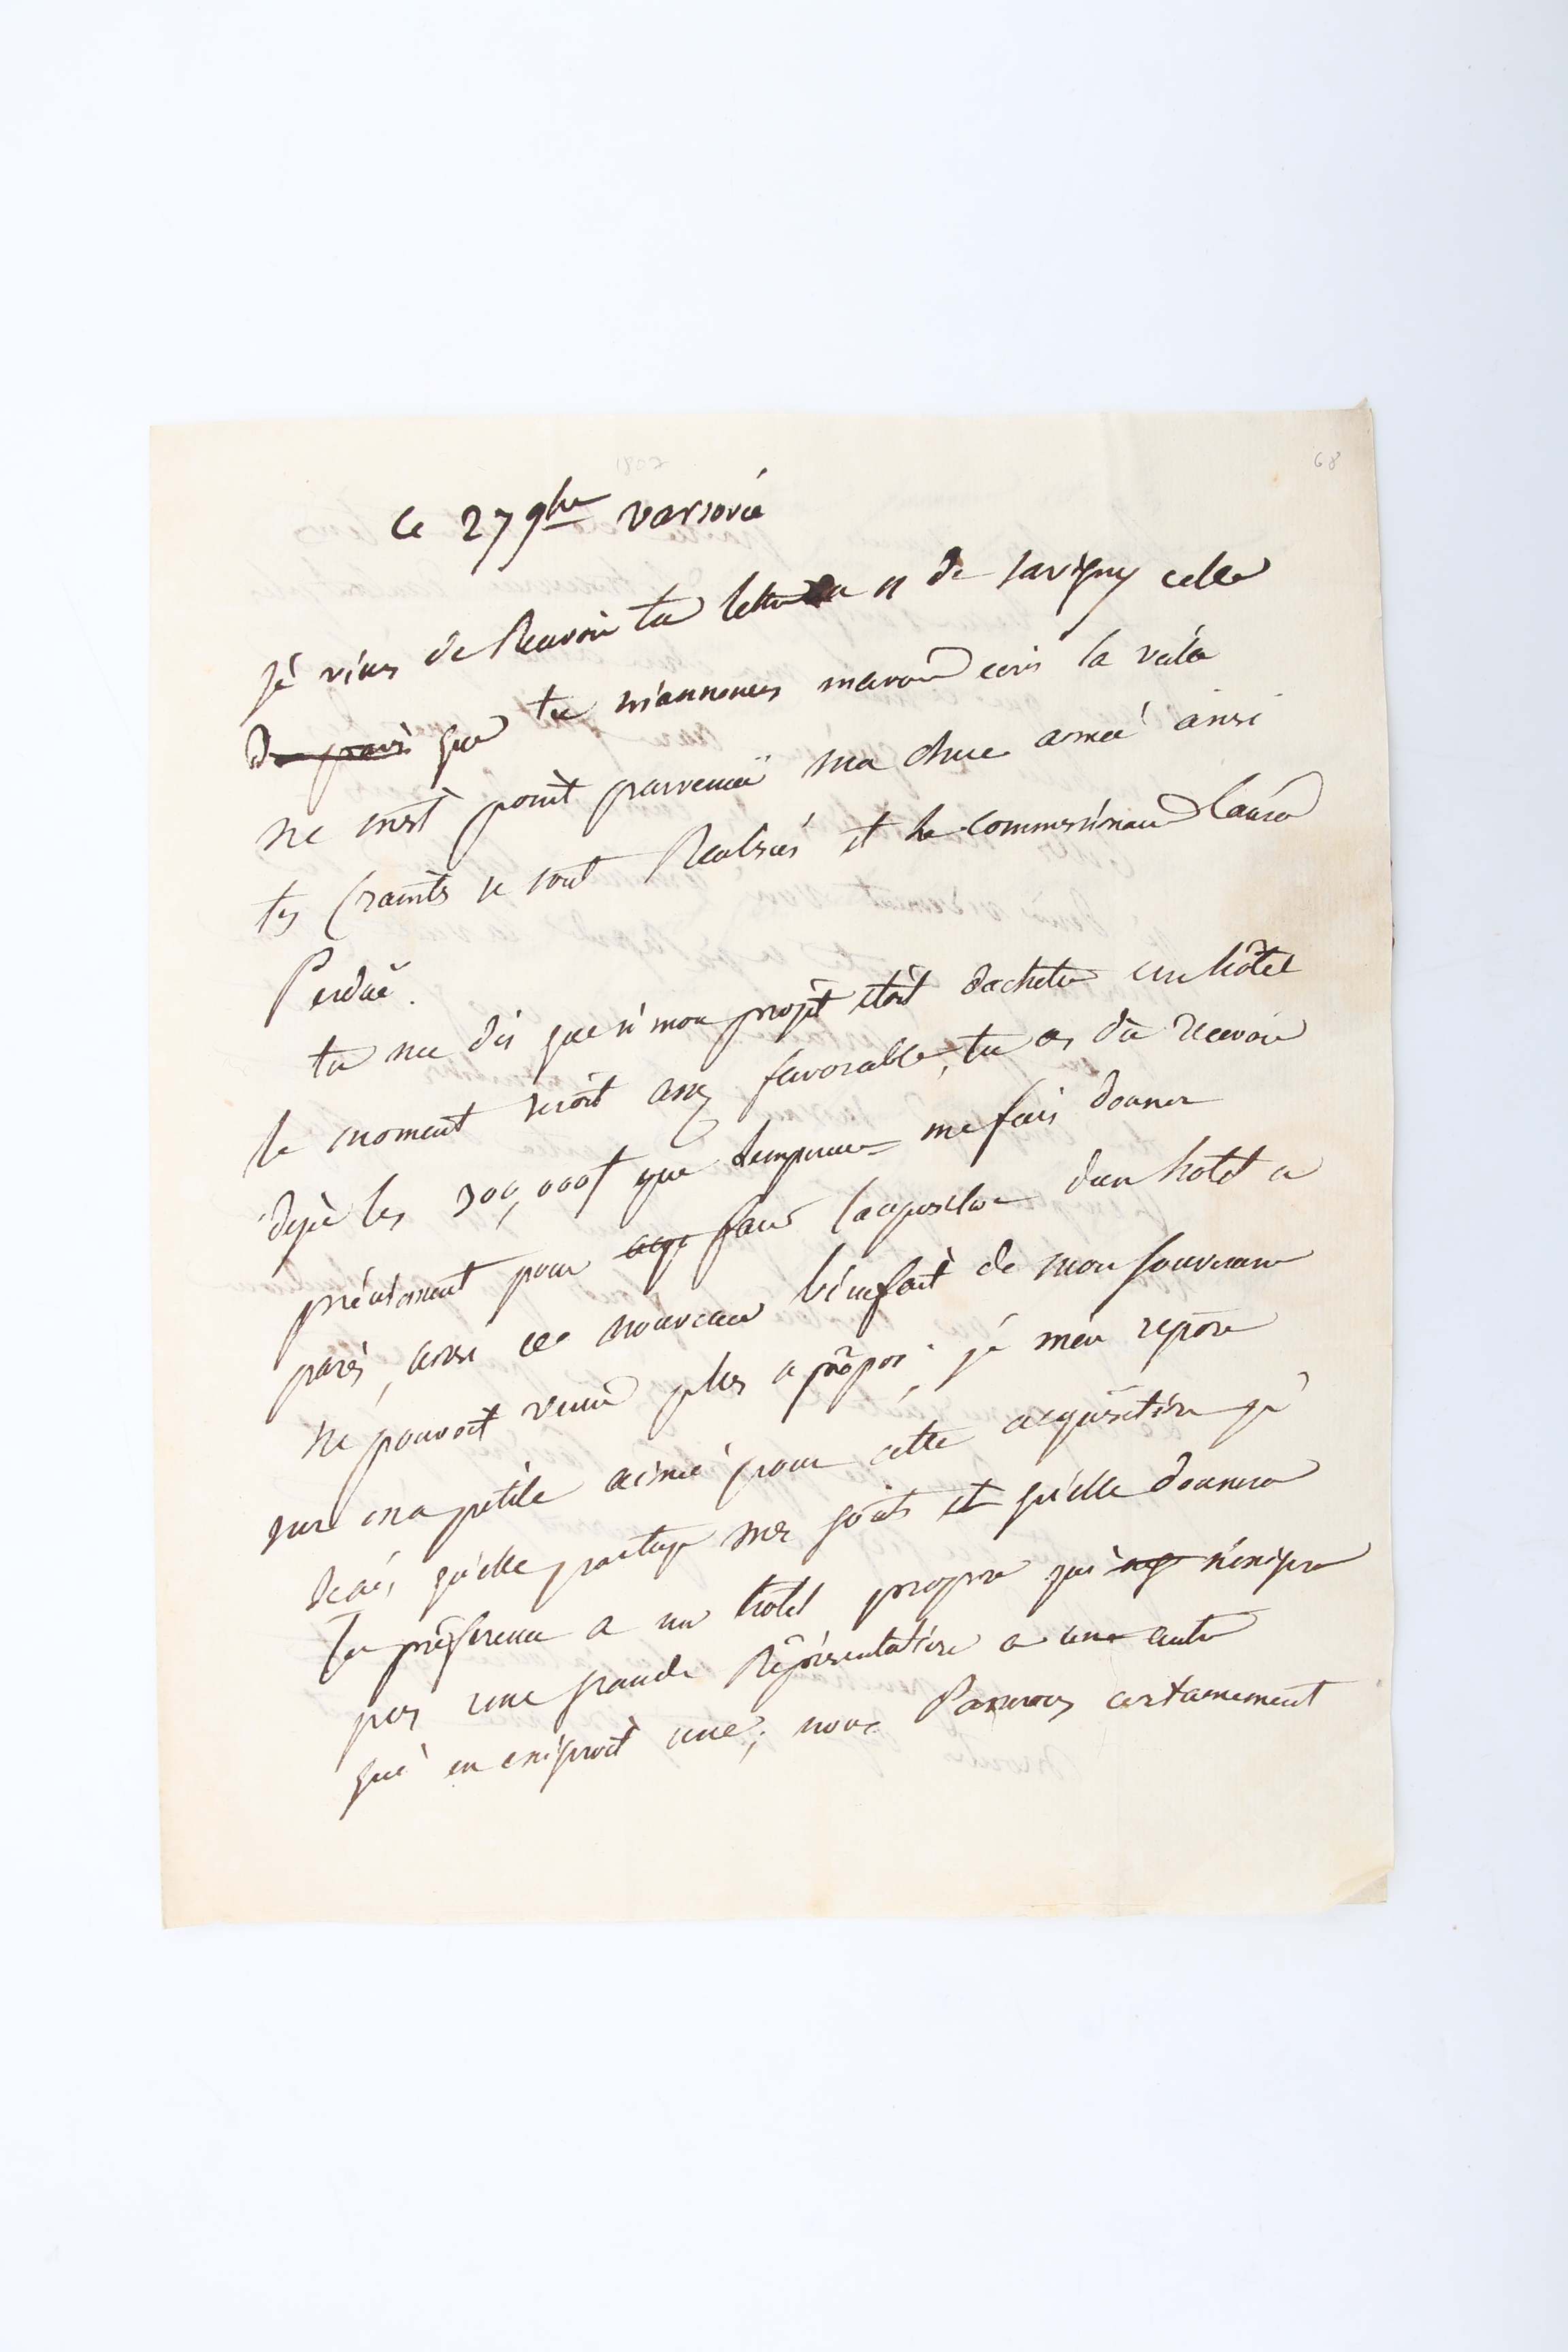 1807
68
Ce 27 9bre varsovie
je viens de Recevoir ta lettre du 11 de Savigny celle
de paris que tu m'annonces mavoir ecris la veille
ne m'est point parvenuë ma chere aimée ainsi
tes Craintes se sont Realisés et le commissionaire laura
Perduë.
tu me dis que si mon projet etoit dacheter un hôtel
le moment seroit assez favorable, tu as du recevoir
deja les 300,000f que lempereur me fais donner
préciatement pour acq faire lacquisition dun hotel a
paris, ainsi ce nouveau bienfait de mon souverain
ne pouvoit venir plus a propos. je men repose
sur ma petite aimée pour cette acquisition je
scais qu'elle partage mes goûts et qu'elle donnera
la préference a un hotel propre qui n'exigera
pas une grande Représentation a un autre
qui en exigeroit une; nous Passerons certainement